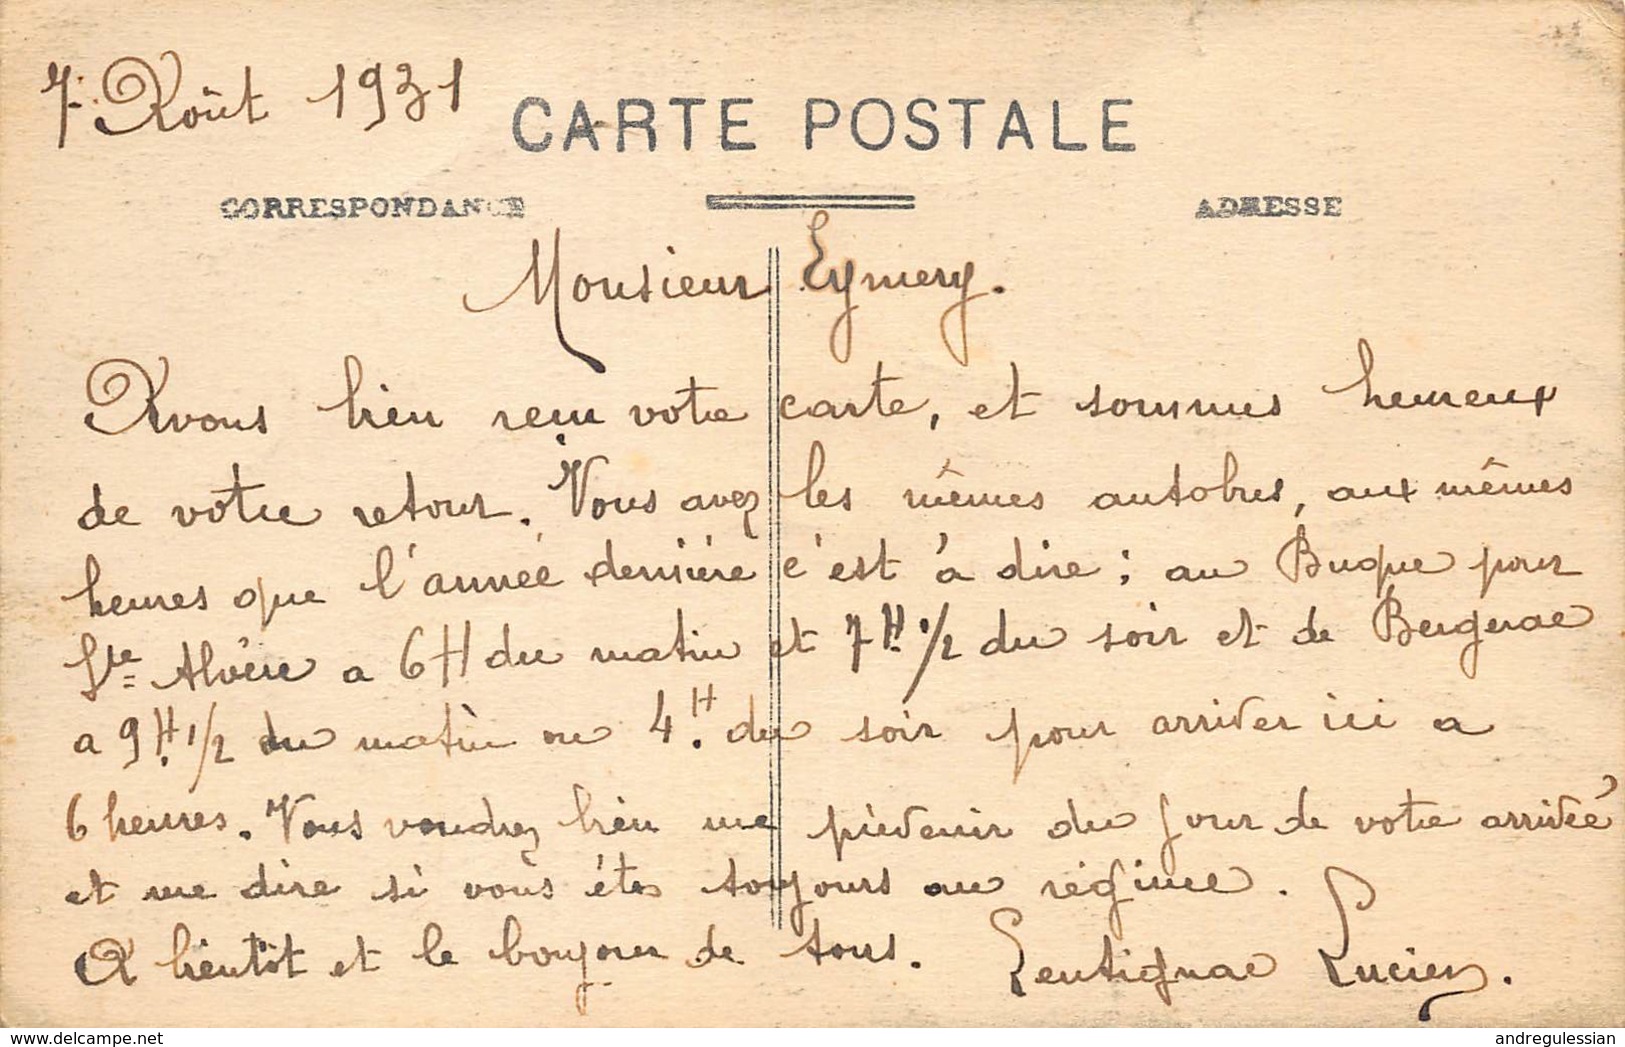 7 Août 1931
CARTE POSTALE
CORRESPONDANCE
ADRESSE
Monsieur Eymery.
Avons bien reçu votre carte, et sommes heureux
de votre retour. Vous avez les mêmes autobus, aux mêmes
heures que l'année dernière c'est à dire ; au Bugue pour
Ste Alvère a 6H du matin et 7H. 1/2 du soir et de Bergerac
a 9H. 1/2 du matin ou 4H. du soir pour arriver ici a
6 heures. Vous voudrez bien me prévenir du jour de votre arrivée
et me dire si vous étes toujours au régime.
A bientôt et le bonjour de tous. Lentignac Lucien.
delcampe.net
andregulessian